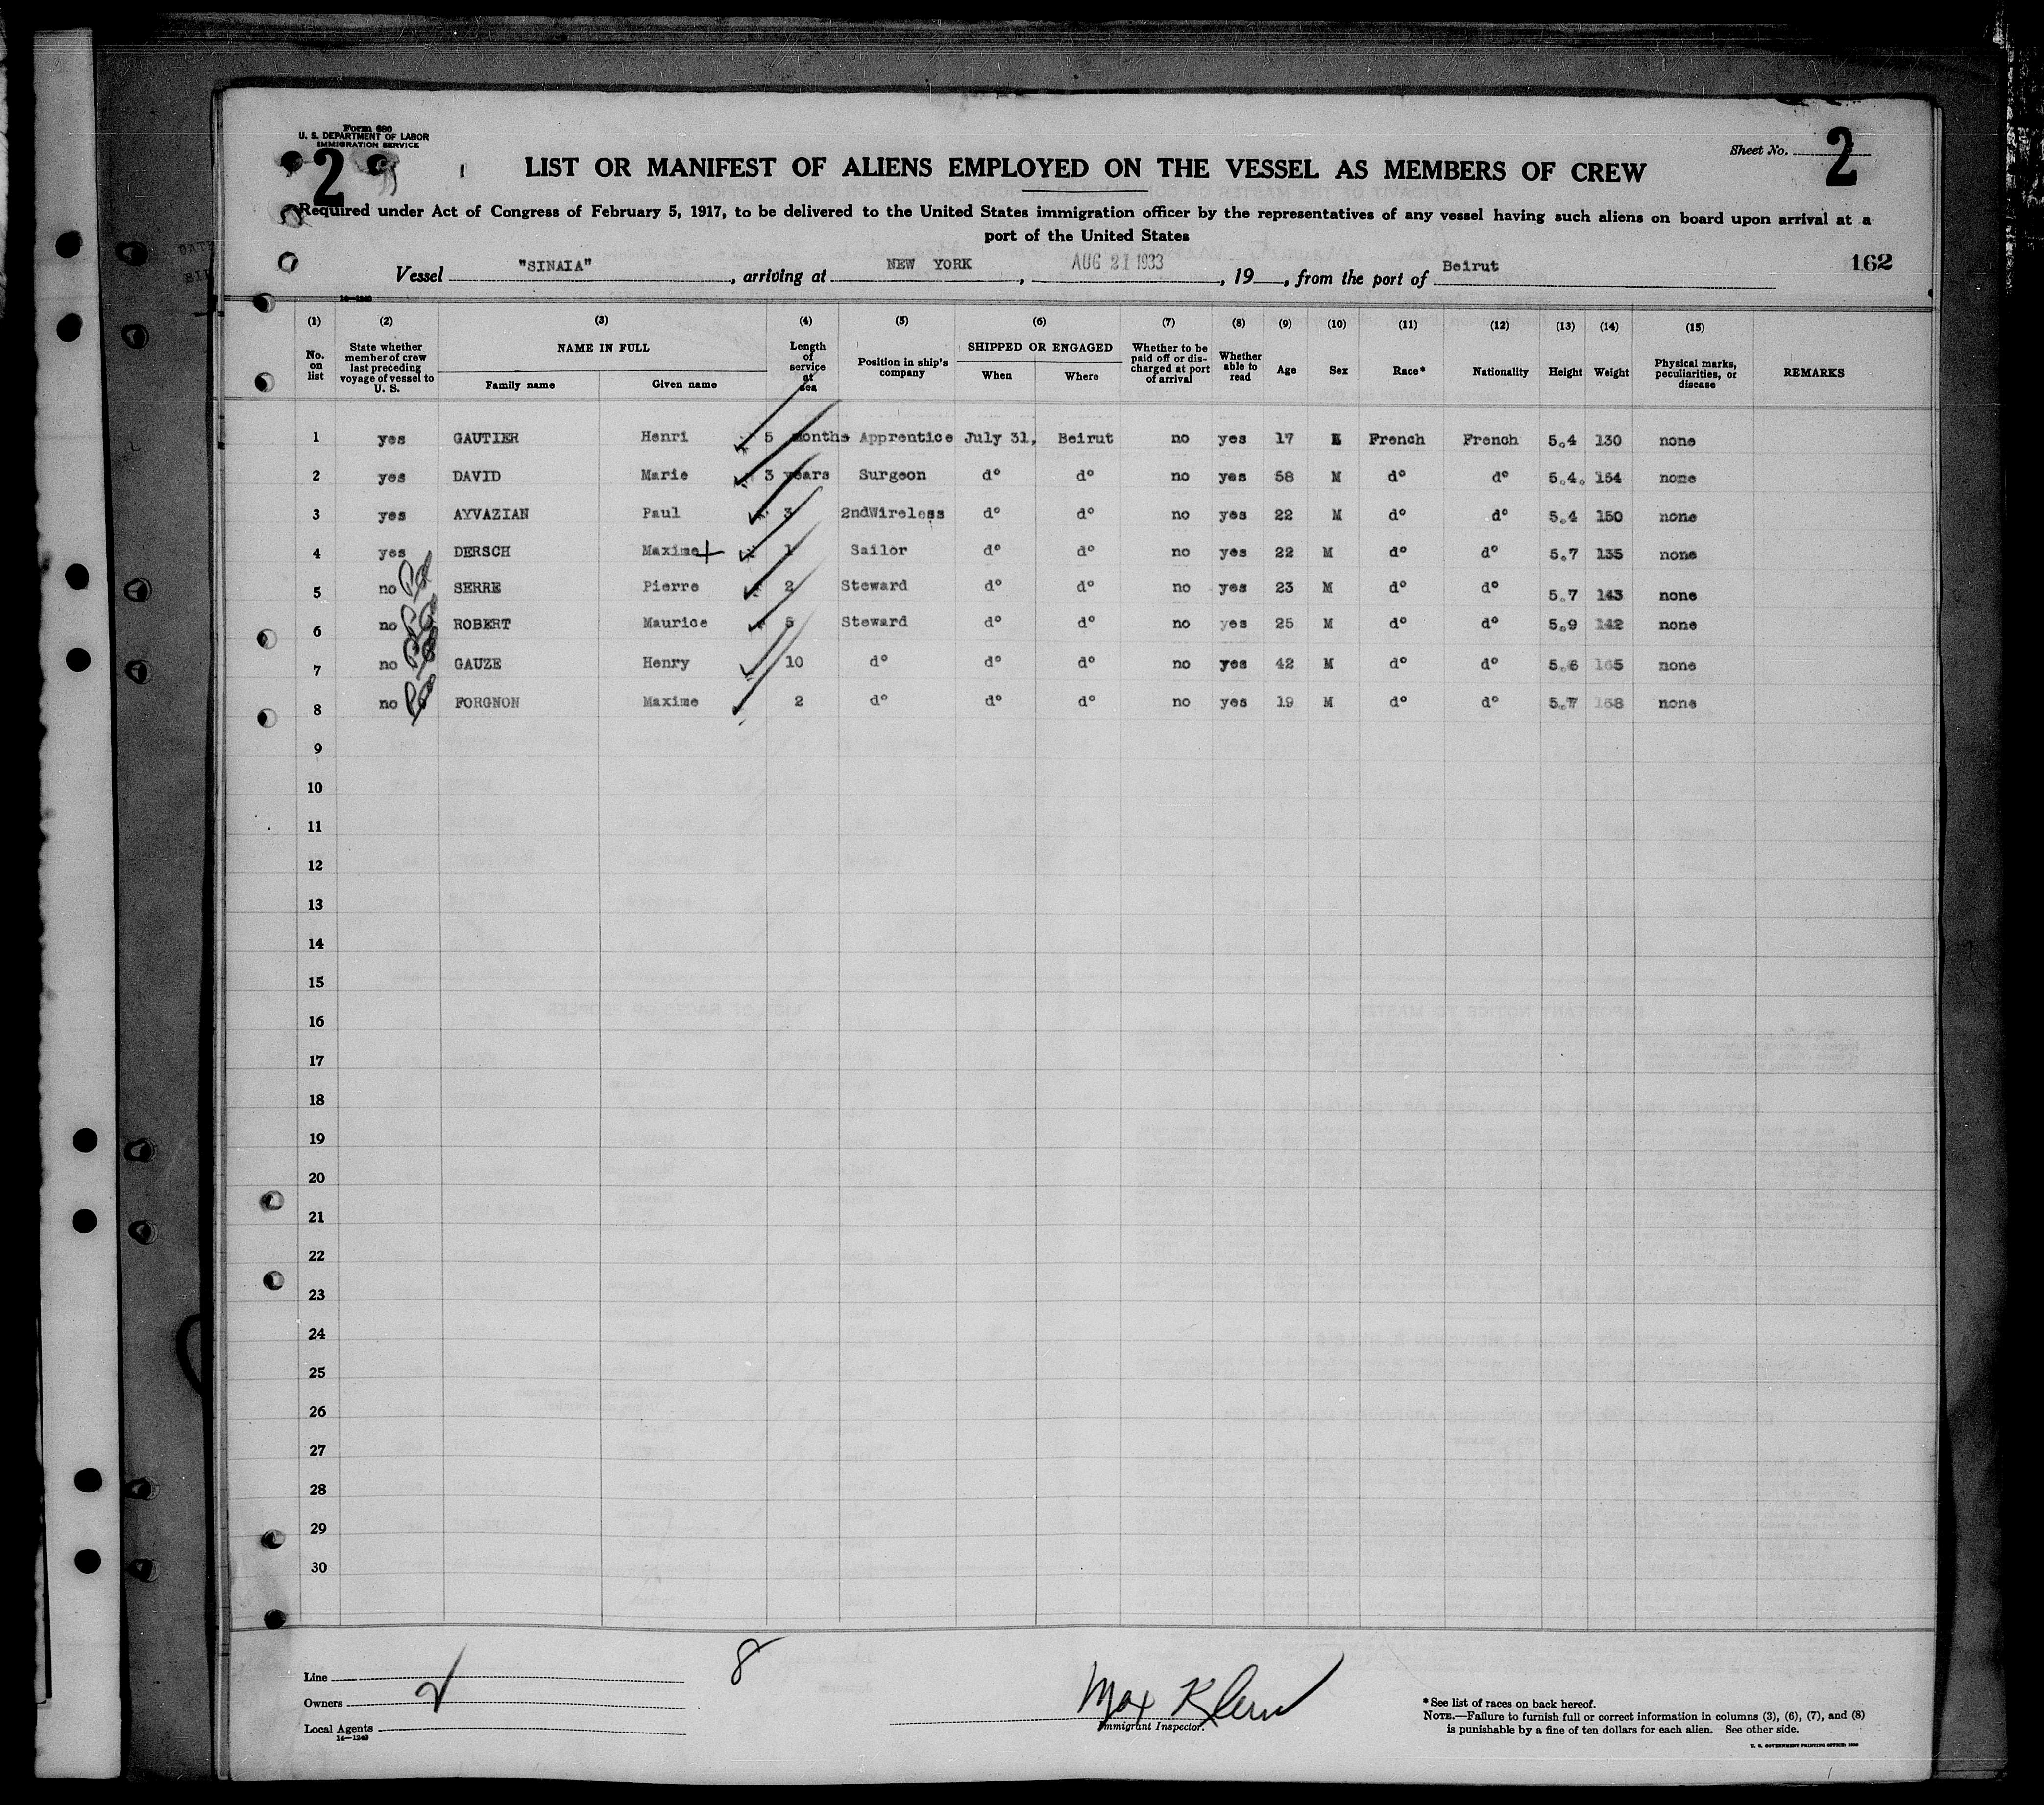 Form 680
U. S. DEPARTMENT OF LABOR
IMMIGRATION SERVICE
2
LIST OR MANIFEST OF ALIENS EMPLOYED ON THE VESSEL AS MEMBERS OF CREW
Sheet No. 2
Required under Act of Congress of February 5, 1917, to be delivered to the United States immigration officer by the representatives of any vessel having such aliens on board upon arrival at a
port of the United States
Vessel "SINAIA", arriving at NEW YORK, AUG 21 1933, 19, from the port of Beirut
162
14—1240
(1) (2) (3) (4) (5) (6) (7) (8) (9) (10) (11) (12) (13) (14) (15)
No. on list
State whether member of crew last preceding voyage of vessel to U. S.
NAME IN FULL
Family name
Given name
Length of service at sea
Position in ship's company
SHIPPED OR ENGAGED
When
Where
Whether to be paid off or discharged at port of arrival
Whether able to read
Age
Sex
Race*
Nationality
Height
Weight
Physical marks, peculiarities, or disease
REMARKS
1 yes GAUTIER Henri 5 months Apprentice July 31, Beirut no yes 17 French French 5.4 130 none
2 yes DAVID Marie 3 years Surgeon d° d° no yes 58 M d° d° 5.4. 154 none
3 yes AYVAZIAN Paul 3 2ndWireless d° d° no yes 22 M d° d° 5.4 150 none
4 yes DERSCH Maxime + 1 Sailor d° d° no yes 22 M d° d° 5.7 135 none
5 no SERRE Pierre 2 Steward d° d° no yes 23 M d° d° 5.7 143 none
6 no ROBERT Maurice 5 Steward d° d° no yes 25 M d° d° 5.9 142 none
7 no GAUZE Henry 10 d° d° d° no yes 42 M d° d° 5.6 165 none
8 no FORGNON Maxime 2 d° d° d° no yes 19 M d° d° 5.7 none
9
10
11
12
13
14
15
16
17
18
19
20
21
22
23
24
25
26
27
28
29
30
8
Line
Owners
Local Agents
14—1240
Max Klein
Immigrant Inspector.
*See list of races on back hereof.
NOTE.—Failure to furnish full or correct information in columns (3), (6), (7), and (8)
is punishable by a fine of ten dollars for each alien. See other side.
U. S. GOVERNMENT PRINTING OFFICE